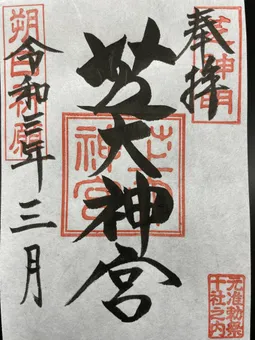 奉拝
芝大神宮
令和三年三月
朔日祈願
芝大神宮
元准勅祭
十社之内